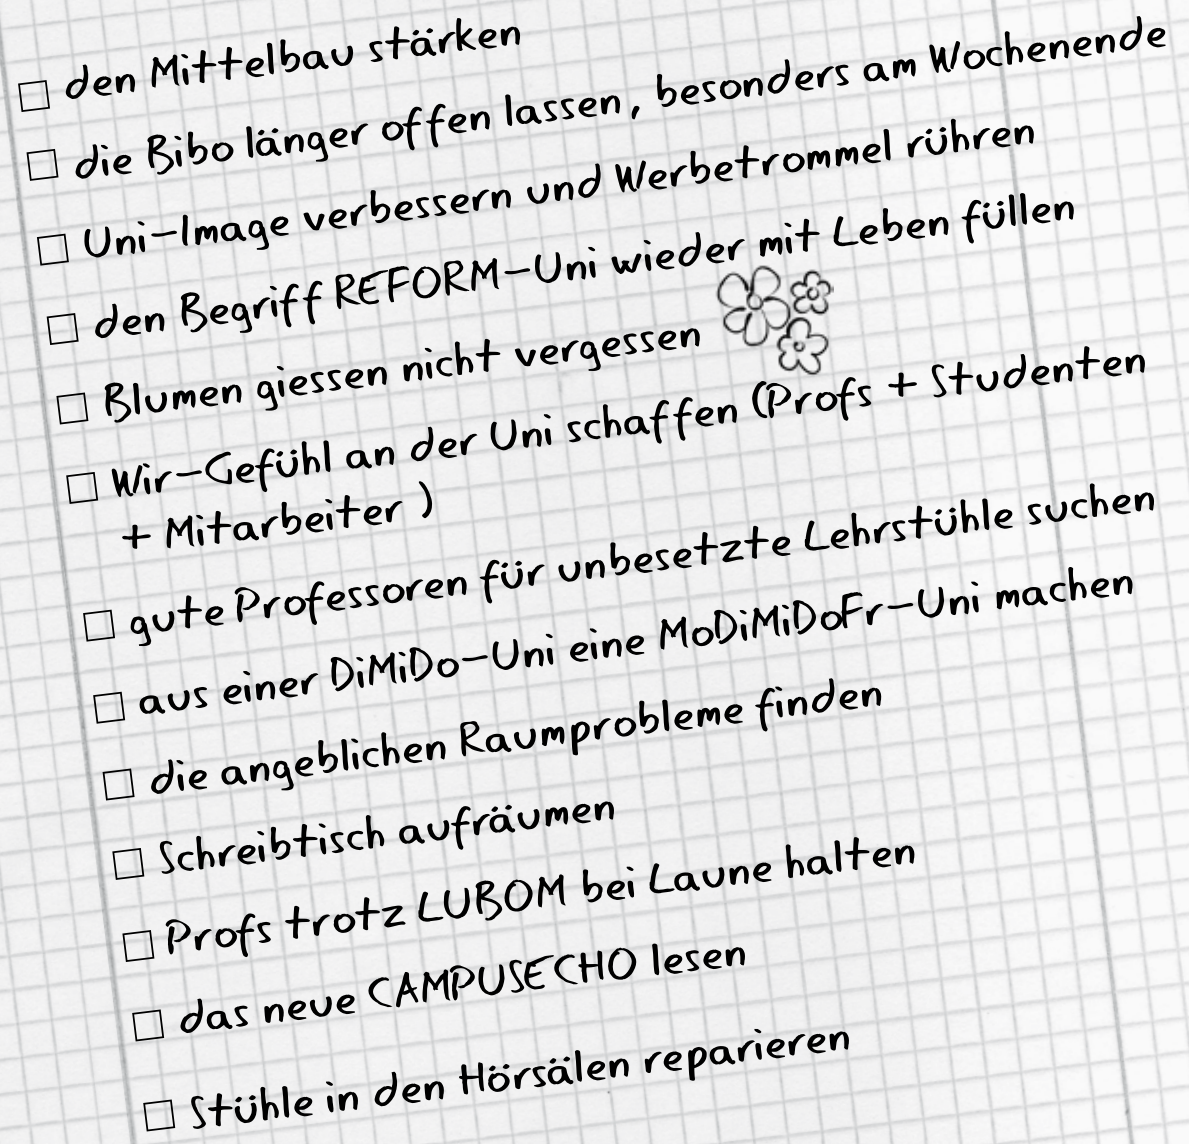 ☐ den Mittelbau stärken
☐ die Bibo länger offen lassen, besonders am Wochenende
☐ Uni-Image verbessern und Werbetrommel rühren
☐ den Begriff REFORM-Uni wieder mit Leben füllen
☐ Blumen giessen nicht vergessen
☐ Wir-Gefühl an der Uni schaffen (Profs + Studenten
+ Mitarbeiter )
☐ gute Professoren für unbesetzte Lehrstühle suchen
☐ aus einer DiMiDo-Uni eine MoDiMiDoFr-Uni machen
☐ die angeblichen Raumprobleme finden
☐ Schreibtisch aufräumen
☐ Profs trotz LUBOM bei Laune halten
☐ das neue CAMPUSECHO lesen
☐ Stühle in den Hörsälen reparieren